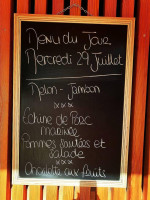 Menu du Jour
Mercredi 29 Juillet
Melon - jambon
***
Echine de Porc
marinée
Pommes sautées et
salade
***
aux fruits